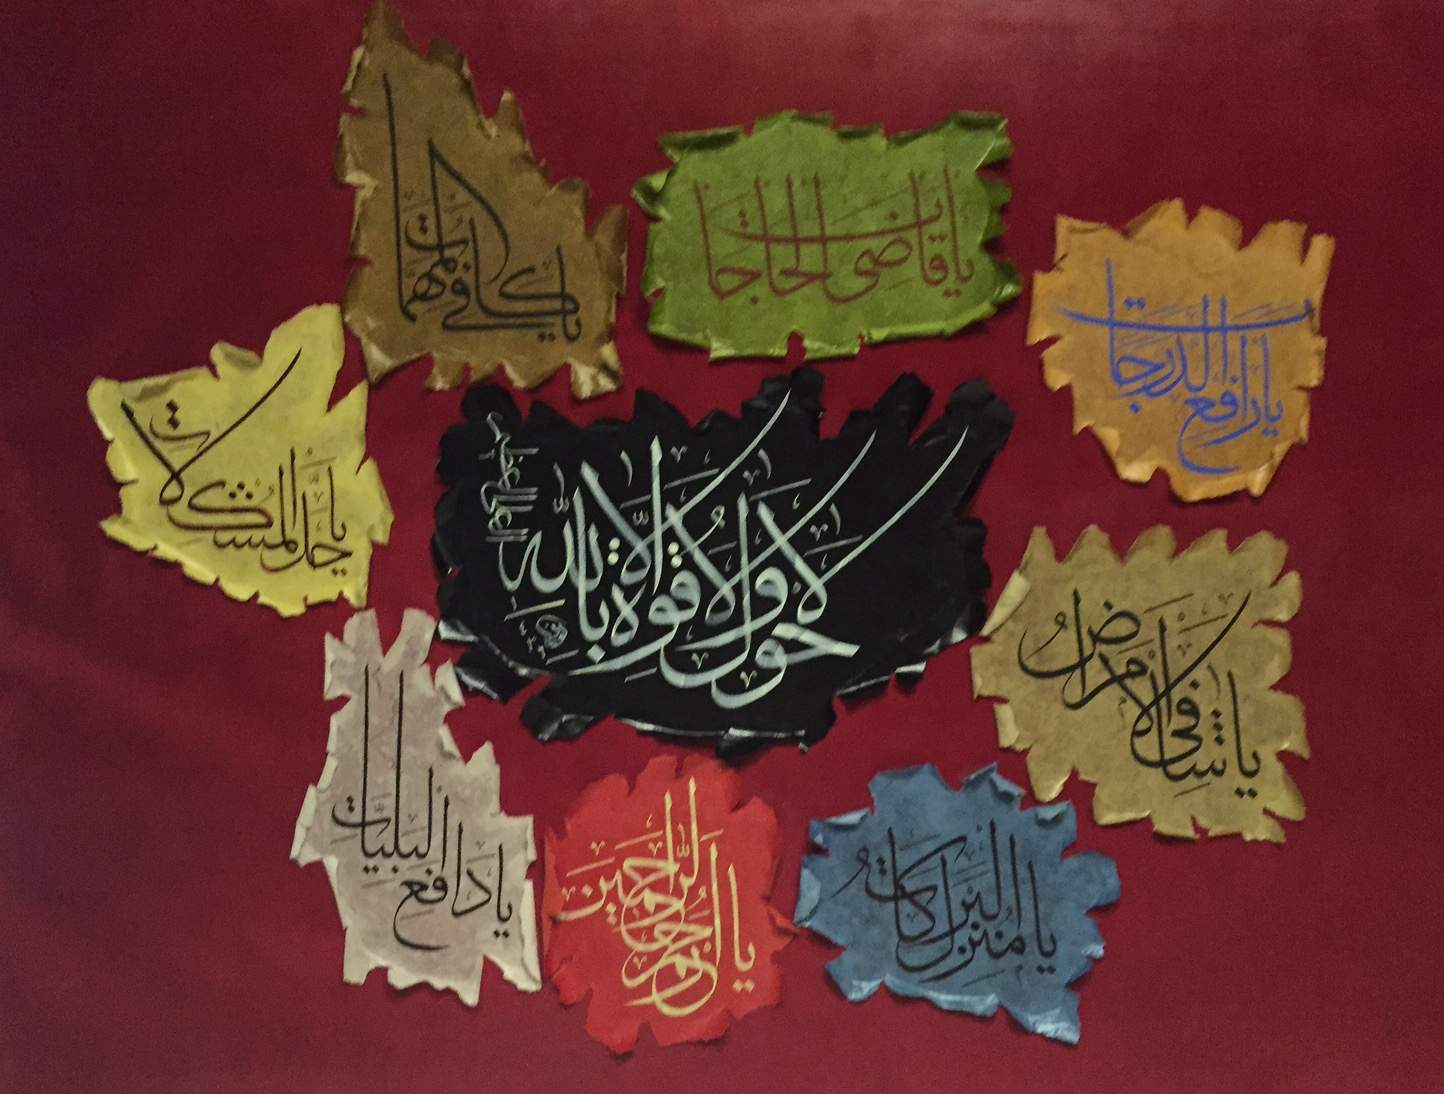 يا كافي المهمات
يا قاضي الحاجات
يا رافع الدرجات
يا حل المشكلات
لا حول ولا قوة الا بالله
العلي العظيم
يا شافي الامراض
يا دافع البليات
يا ارحم الرحمين
يا منزل البركات